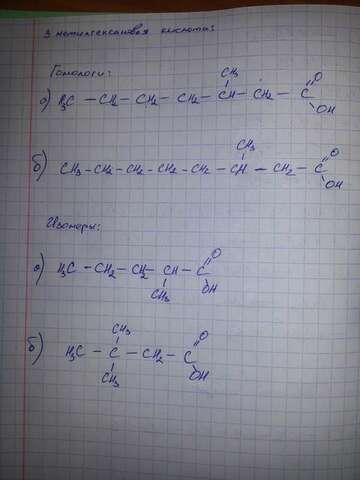 3 метилгексановая кислота:
Гомологи:
CH₃
а) H₃C – CH₂ – CH₂ – CH₂ – CH – CH₂ – C
O
OH
CH₃
б) CH₃ – CH₂ – CH₂ – CH₂ – CH₂ – CH – CH₂ – C
O
OH
Изомеры:
а) H₃C – CH₂ – CH₂ – CH – C
O
OH
CH₃
CH₃
б) H₃C – C – CH₂ – C
O
OH
CH₃